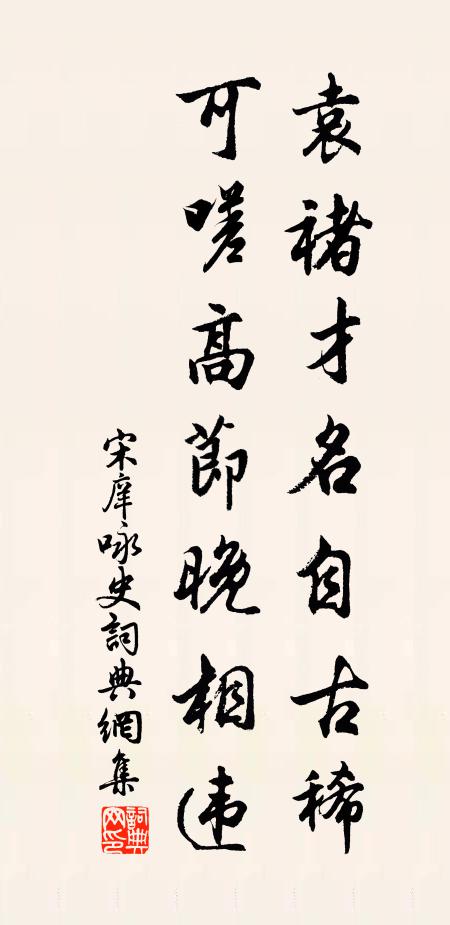 袁褚才名自古稀
可嗟高節晚相违
宋庠咏史詞典網集
詞典網印